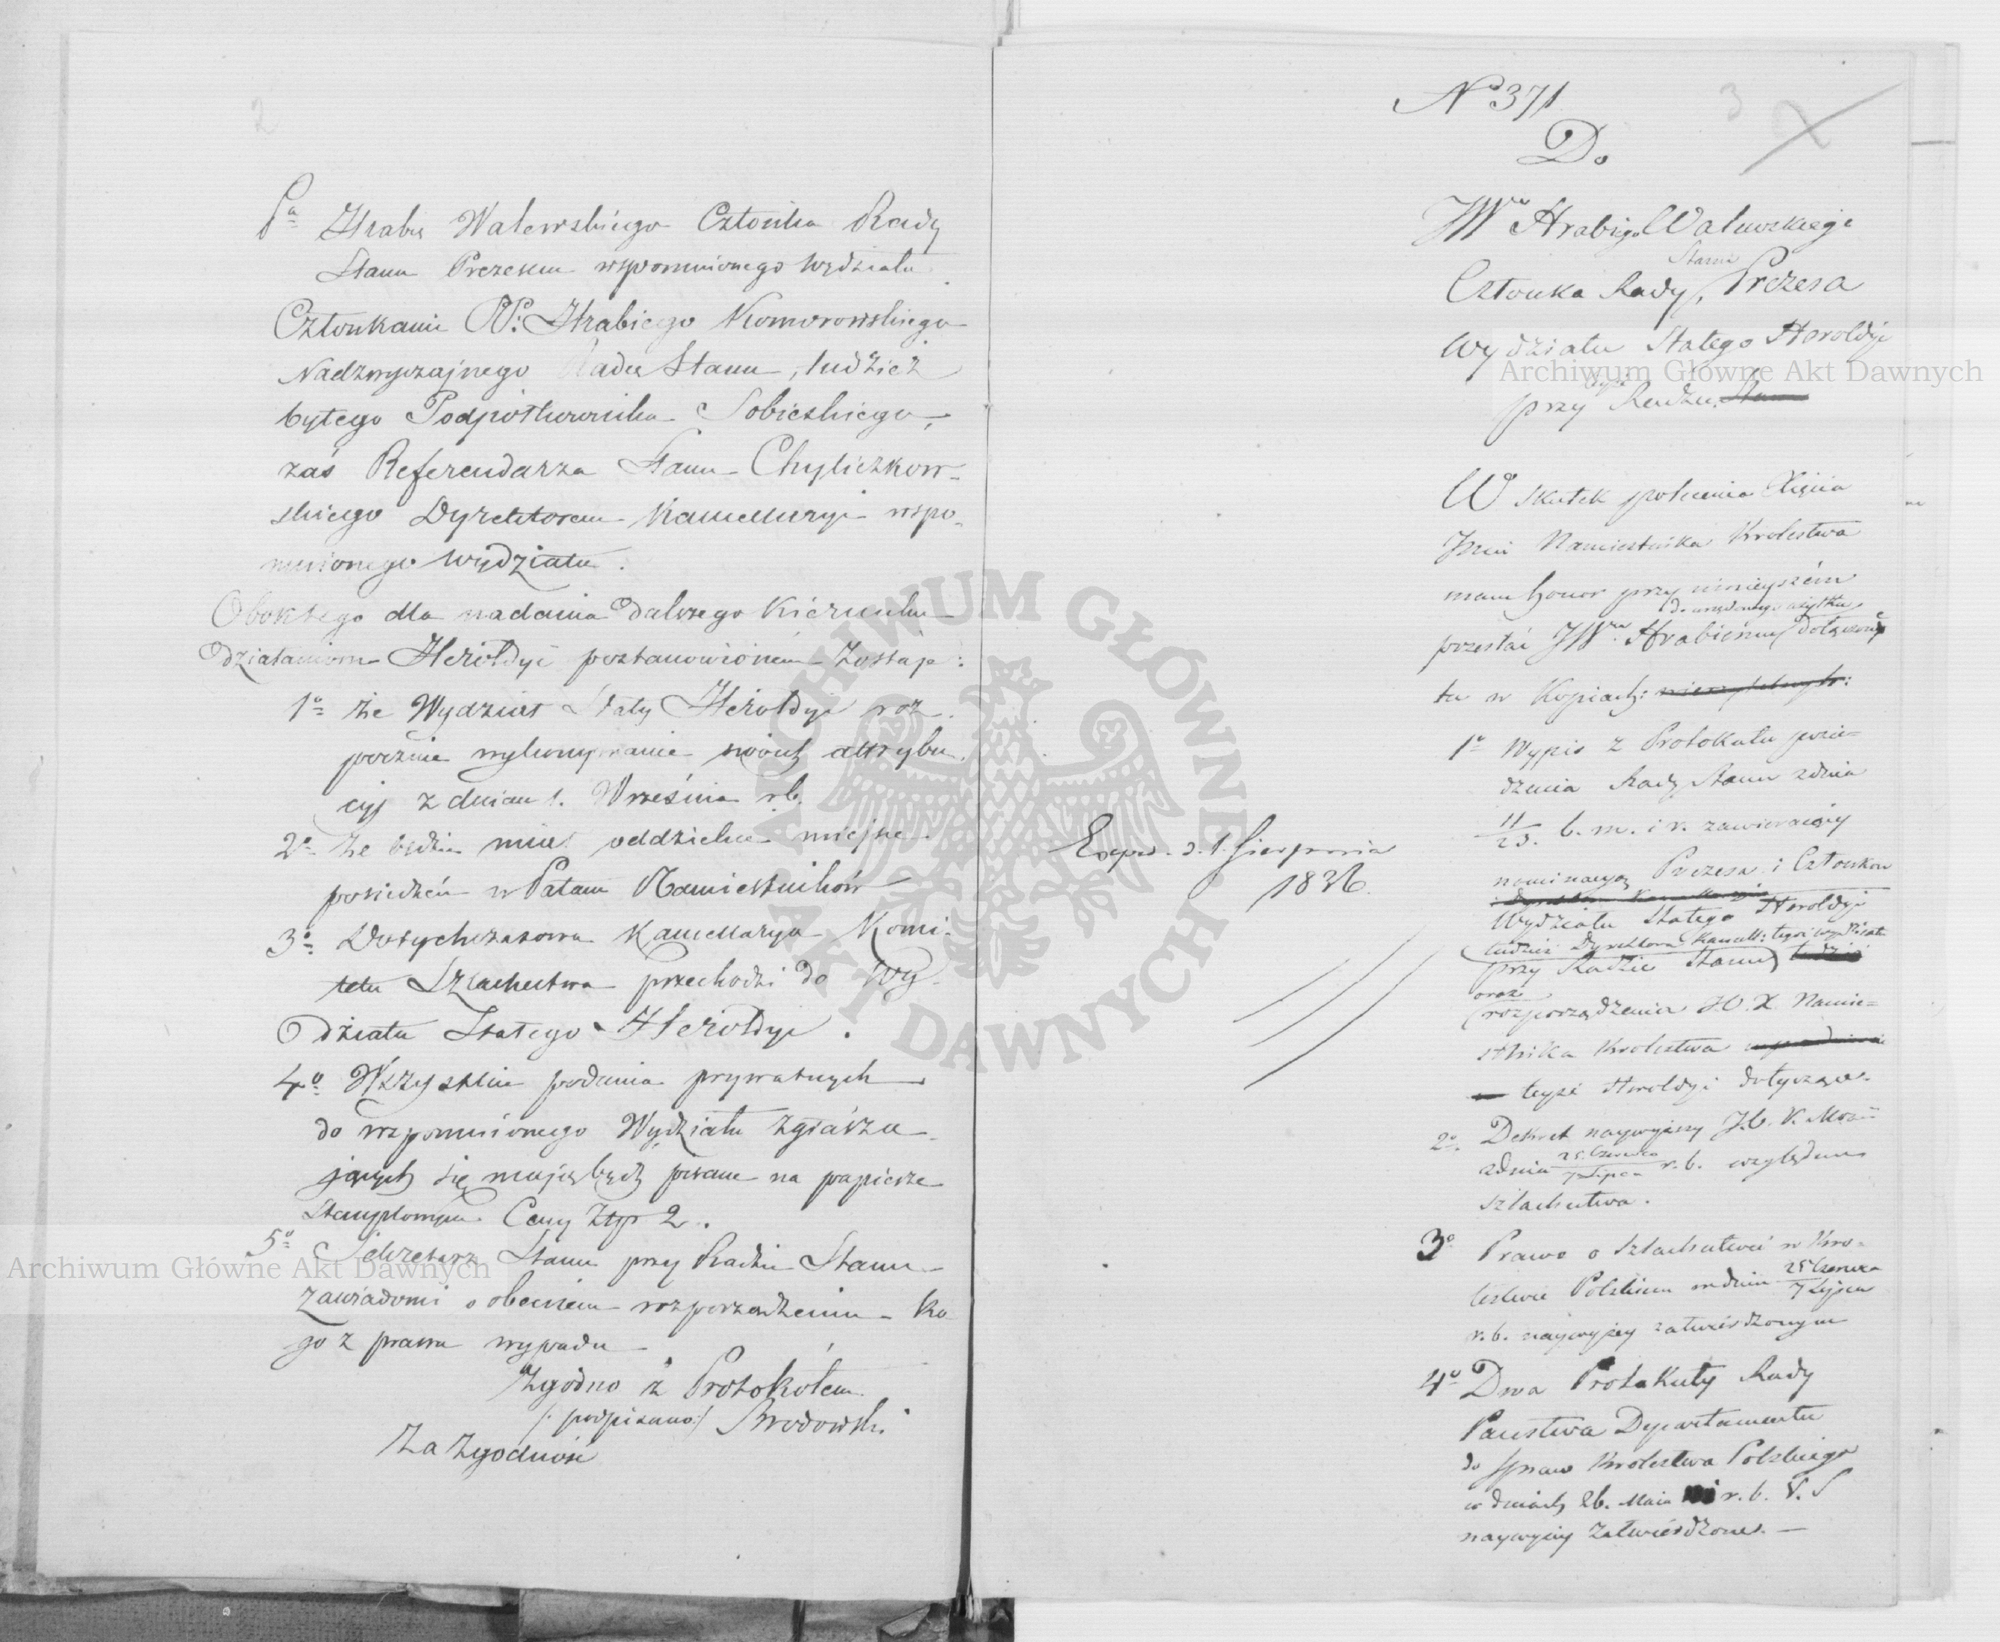 2
Pa Hrabię Walewskiego Członka Rady
Stanu Prezesem wspomnionego Wydziału
Członkami PP: Hrabiego Komorowskiego
Nadzwyczajnego Radcę Stanu, tudzież
byłego Podpółkownika Sobieskiego,
zaś Referendarza Stanu Chyliczkow-
skiego Dyrektorem Kancellaryi wspo-
mnionego Wydziału.
Obok tego dla nadania dalszego kierunku
działaniom Heroldyi postanowionem zostaje:
1o że Wydział Stały Heroldyi roz-
pocznie wykonywanie swoich attrybu-
cyj z dniem 1. Września rb.
2o że będzie miał oddzielne miejsce
posiedzeń w Pałacu Namiestników
3o Dotychczasowa Kancellarya Komi-
tetu Szlachectwa przechodzi do Wy-
działu Stałego Heroldyi.
4o Wszystkie podania prywatnych
do wspomnionego Wydziału zgłasza-
jących się mają być pisane na papierze
Stemplowym Ceny Złp 2.
5o Sekretarz Stanu przy Radzie Stanu
zawiadomi o obecnem rozporządzeniu ko-
go z prawa wypada
Zgodno z Protokółem
/: podpisano :/ Brodowski
Za Zgodność
No 371
3
Do
JWo Hrabiego Walewskiego
Stanu
Członka Rady, Prezesa
Wydziału Stałego Heroldyi
przy Radzie Stanu
W skutek polecenia Xięcia
Jmci Namiestnika Królestwa
mam honor przy niniejszém
do urzędowego użytku
przesłać JWmu Hrabiemu dołączone
tu w Kopiach:
1o Wypis z Protokółu posie-
dzenia Rady Stanu z dnia
11/23. b. m. i r. zawierający
nominacyą Prezesa i Członków
Wydziału Stałego Heroldyi
tudzież Dyrektora Kancell: tegoż wydziału
przy Radzie Stanu
oraz
rozporządzenia J.O.X. Namie-
stnika Królestwa
teyże Heroldyi dotyczące.
2o Dekret naywyższy J.C.K. Mości
z dnia 25 Czerwca/7 Lipca r. b. względem
szlachectwa.
3o Prawo o Szlachectwie w Kró-
lestwie Polskiem w dniu 25 Czerwca/7 Lipca
r. b. naywyżey zatwierdzonym
4o Dwa Protokuły Rady
Państwa Departamentu
do Spraw Królestwa Polskiego
w dniach 26. Maia r. b. V. S
naywyżey zatwierdzone. —
Exped. d. 1 Sierpnia
1836.
Archiwum Główne Akt Dawnych
Archiwum Główne Akt Dawnych
ARCHIWUM GŁÓWNE AKT DAWNYCH